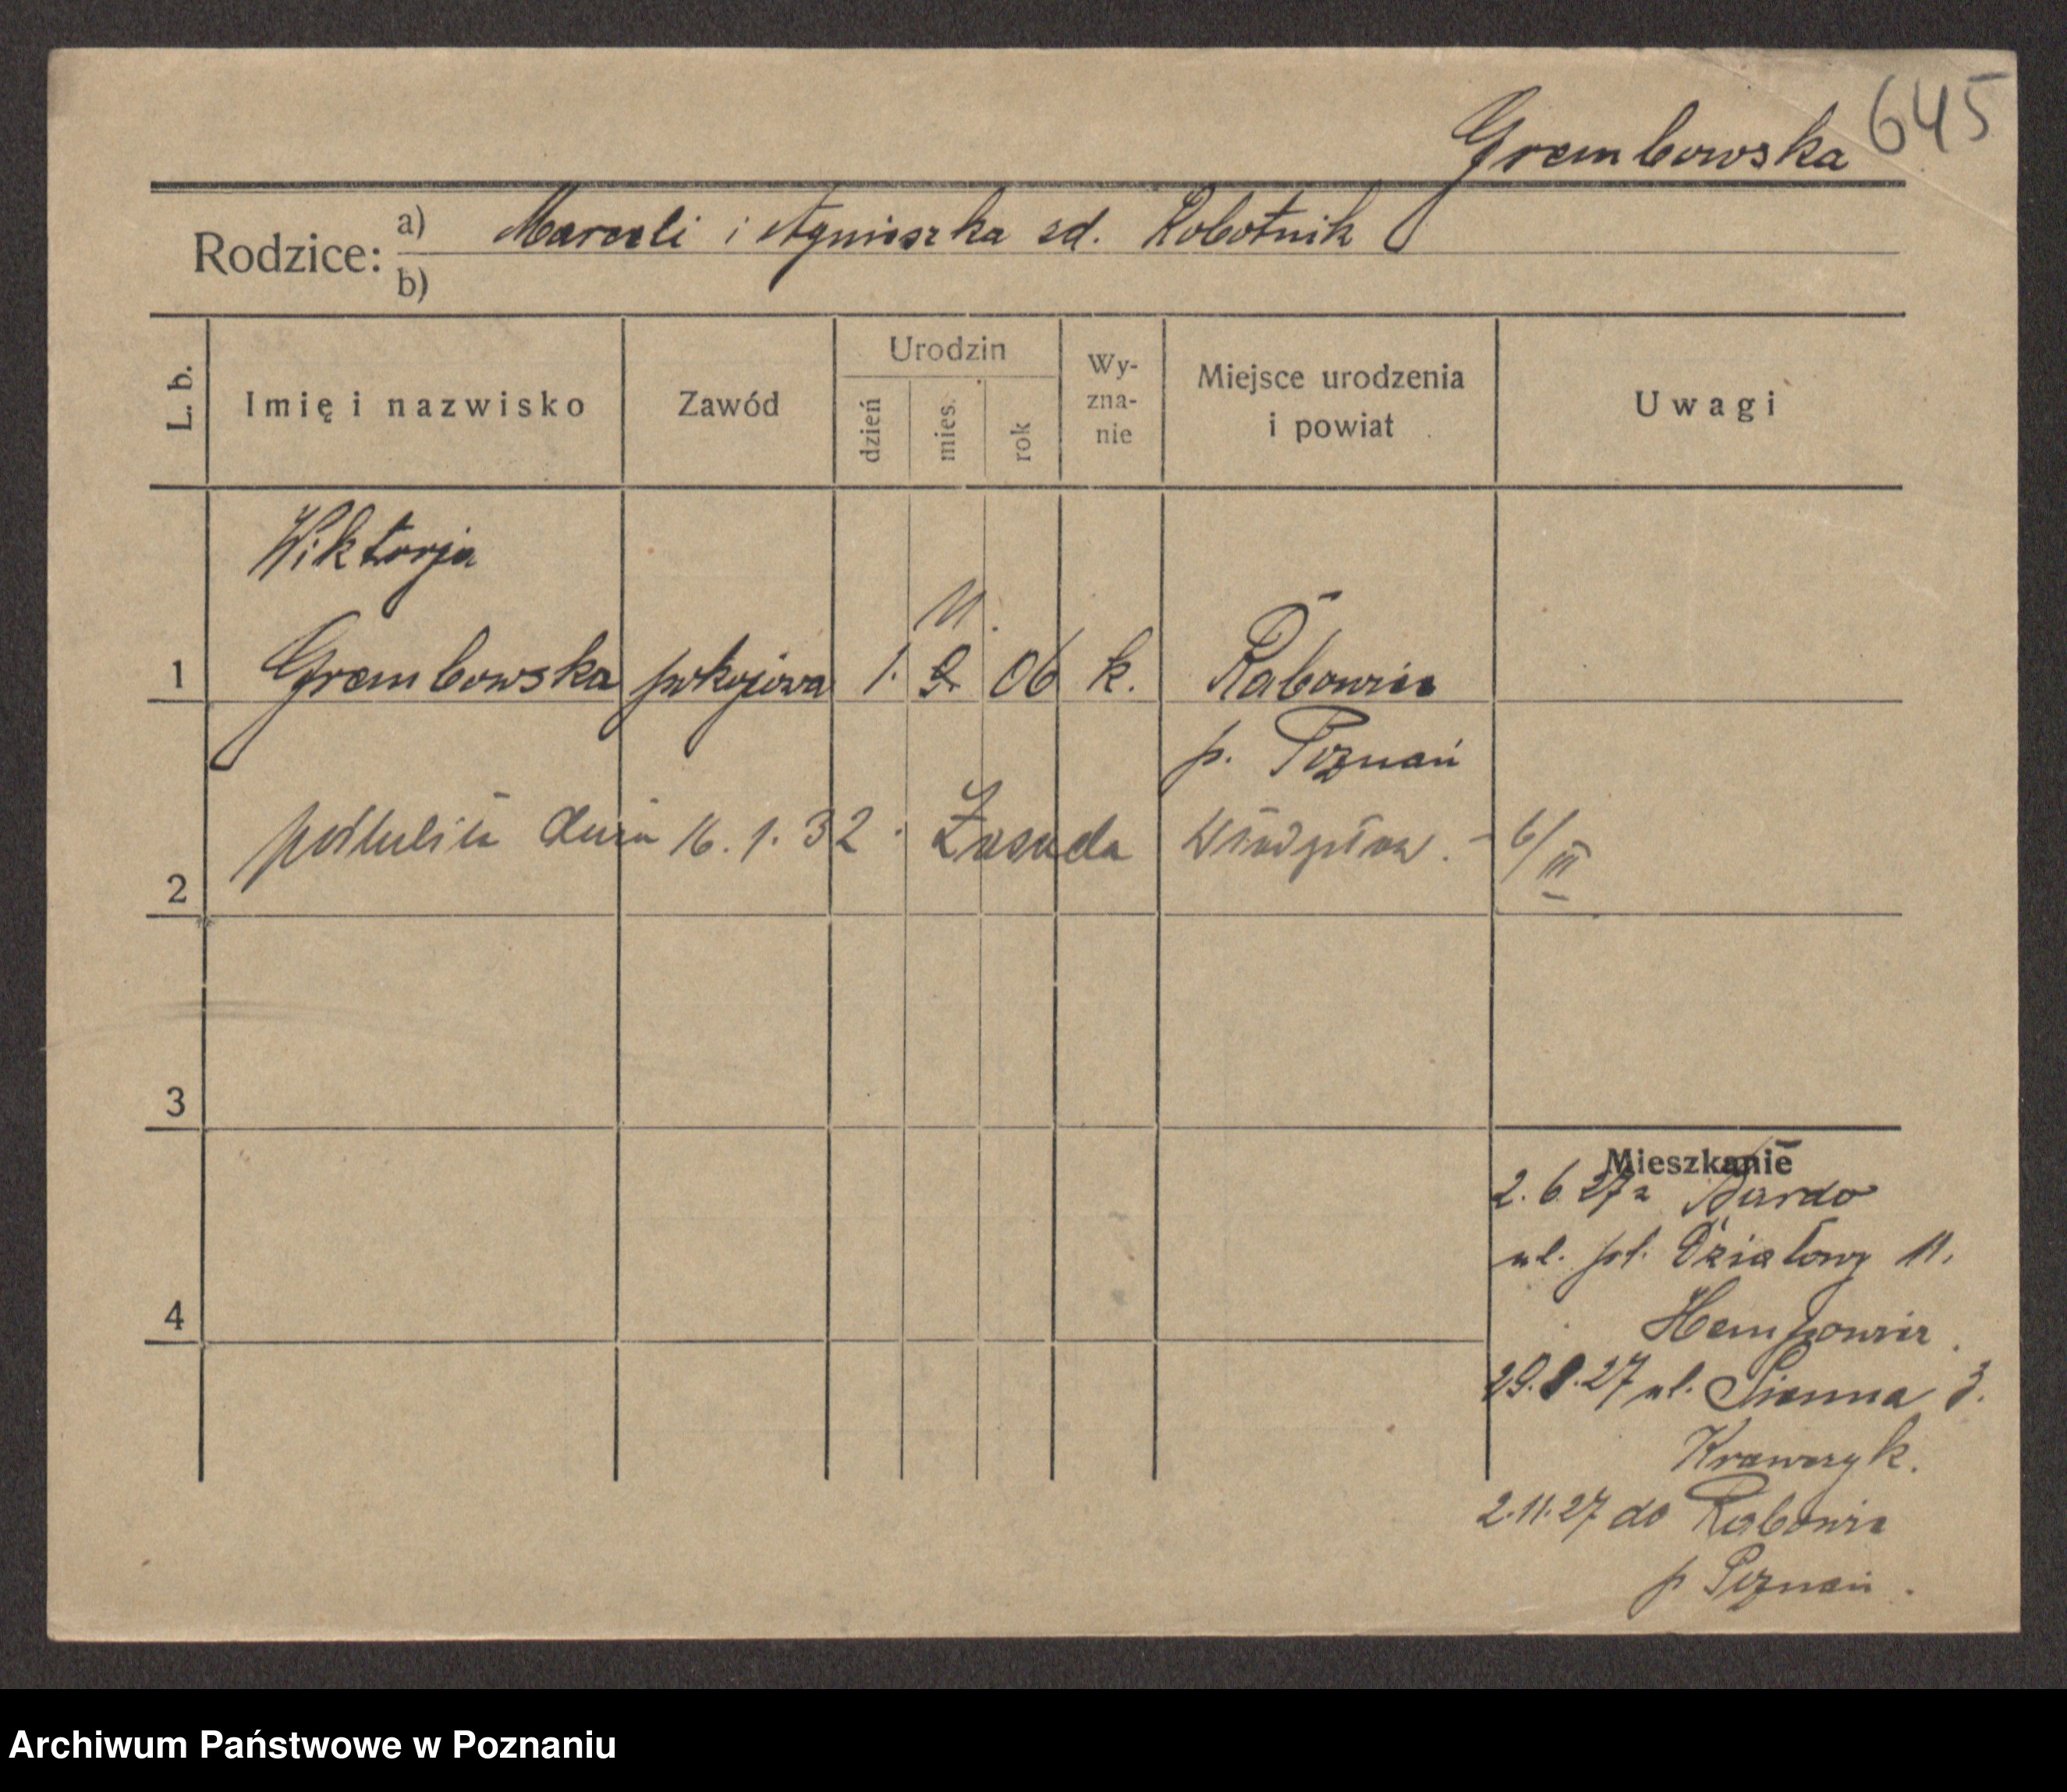 645
Grembowska
Rodzice: a) Marceli i Agnieszka zd. Robotnik
b)
L. b.
Imię i nazwisko
Zawód
Urodzin
dzień
mies.
rok
Wy-
zna-
nie
Miejsce urodzenia
i powiat
Uwagi
Wiktorja
11.
1 Grembowska pokojowa 1. 9. 06 k. Rabowice
p. Poznań
poślubiła dnia 16. 1. 32. Zasada Władysław. - 6/III
2
3
4
Mieszkanie
2. 6. 27 z Bardo
ul. pl. Działowy 11.
29.8.27 ul. Sienna 3.
Krawczyk.
2.11.27 do Rabowic
p Poznań.
Archiwum Państwowe w Poznaniu